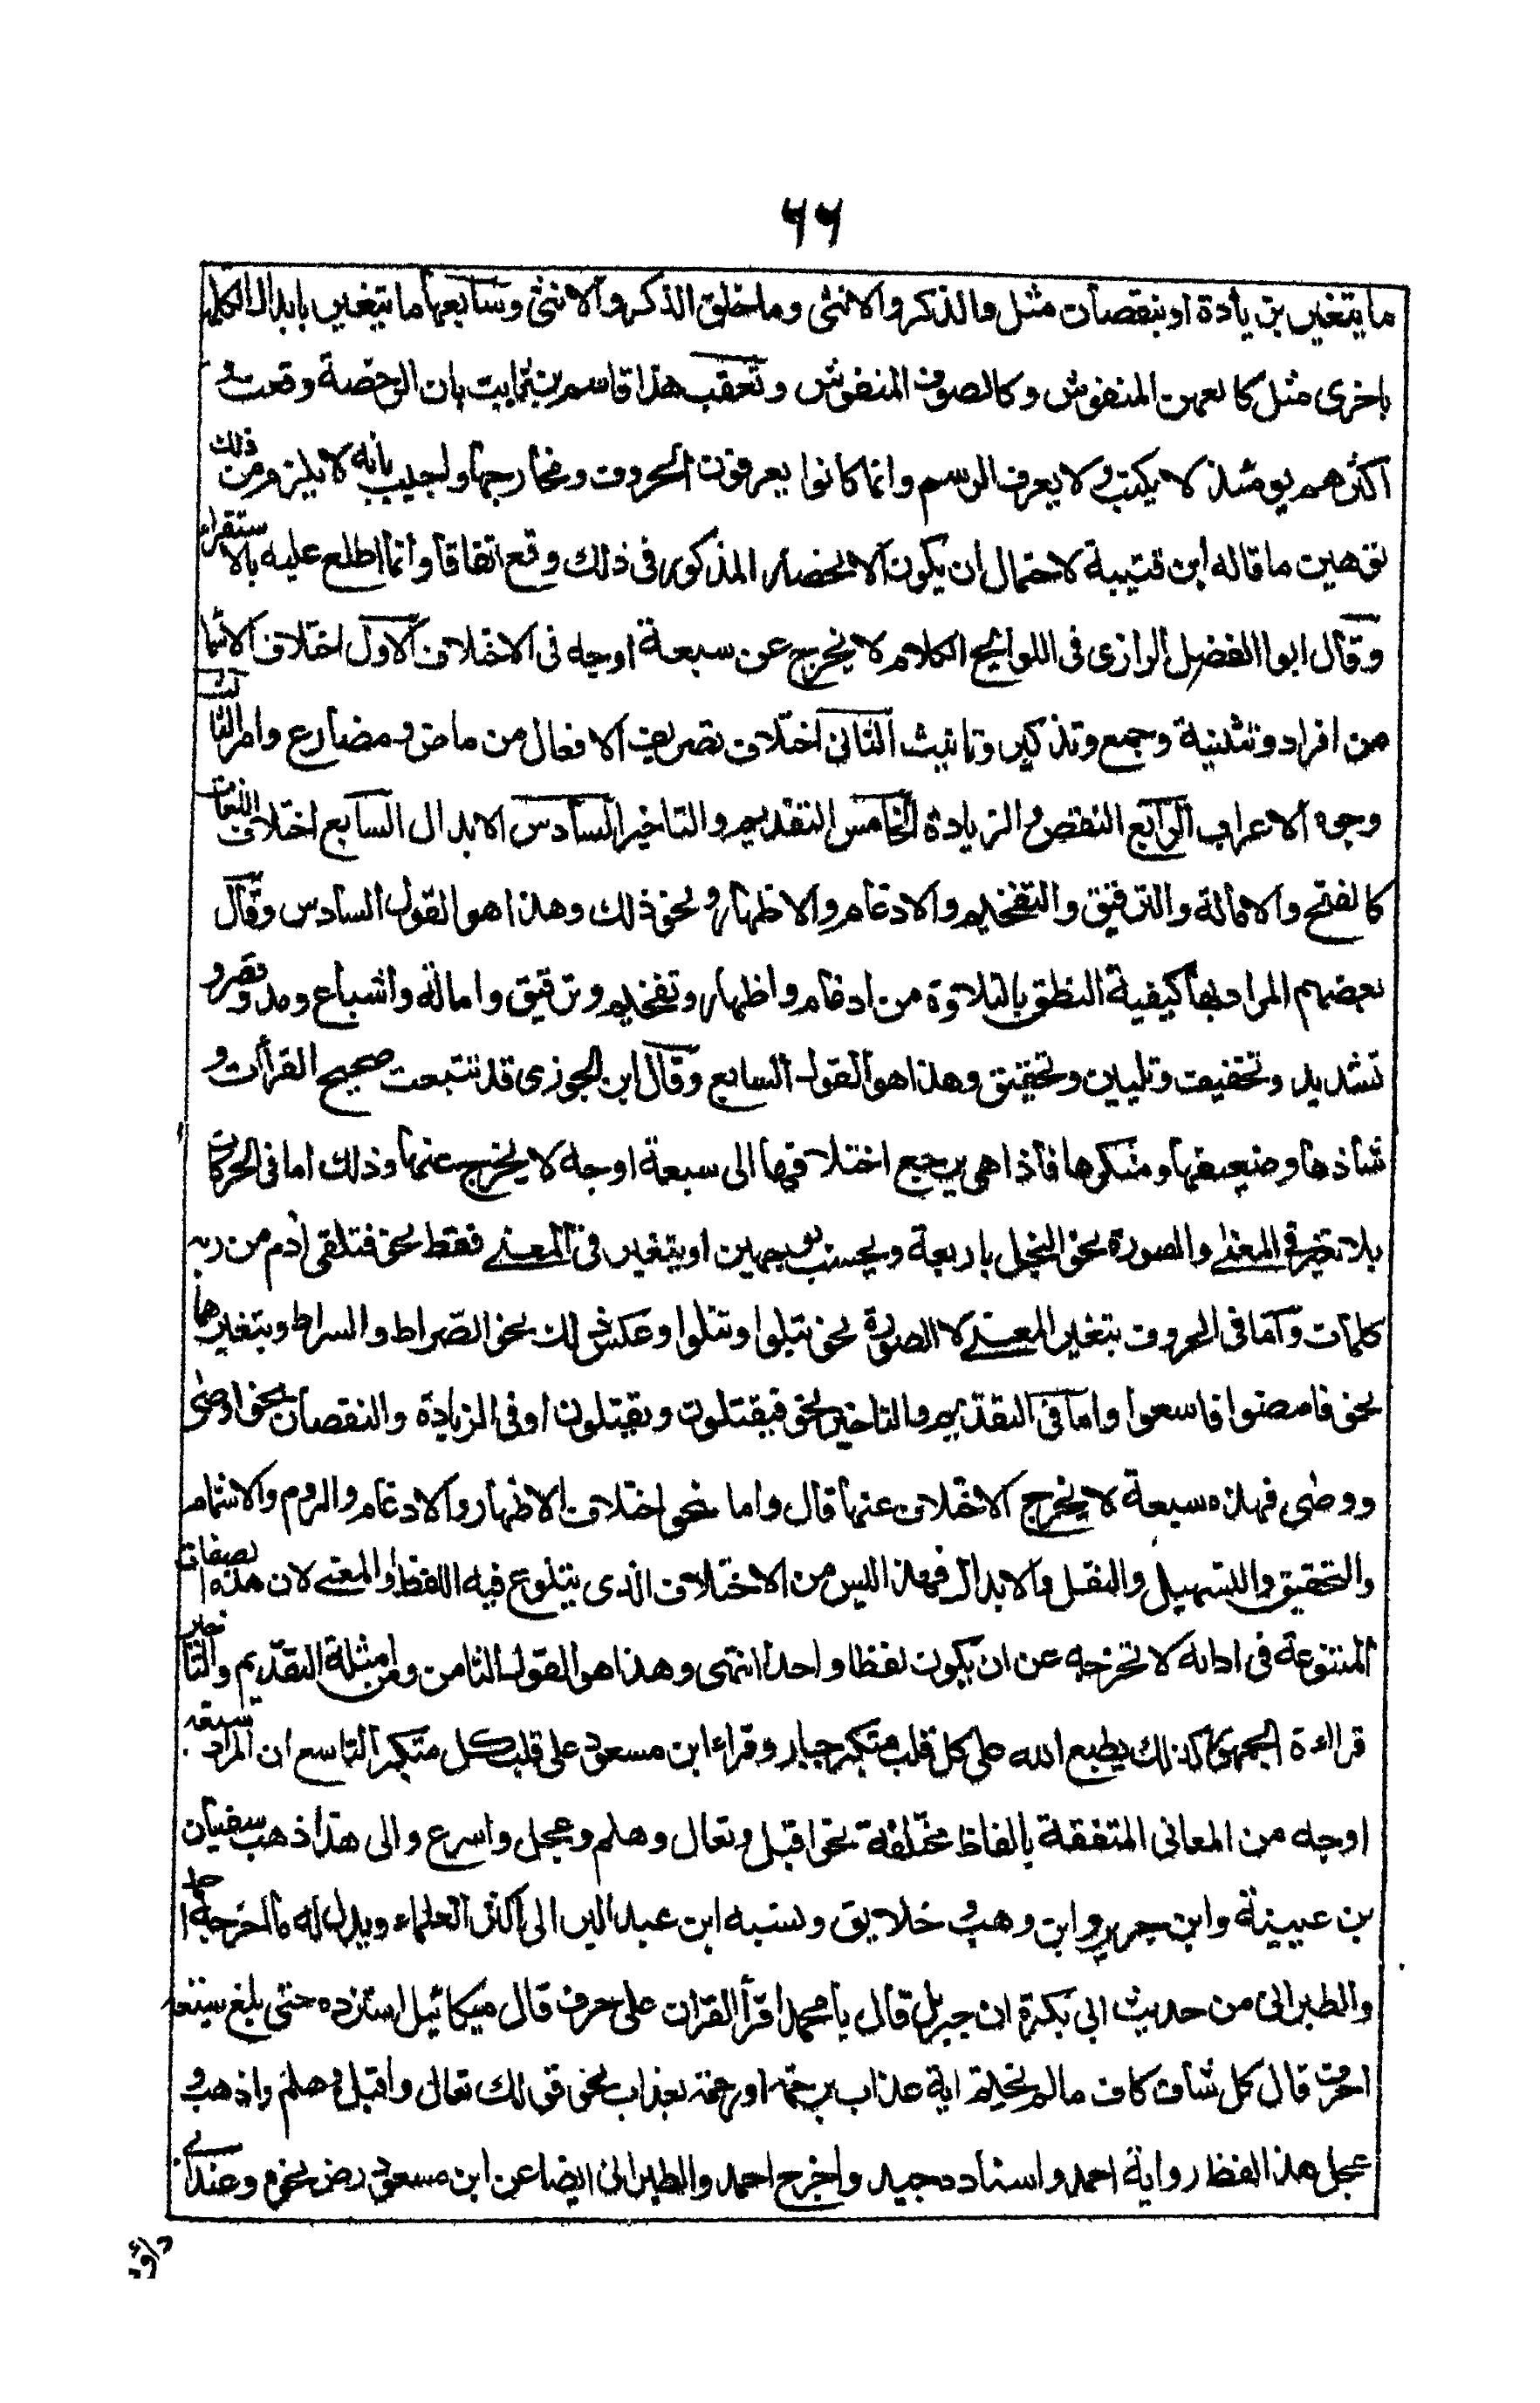 ٦٦
ما يتغير بزيادة او بنقصان مثل والذكر والانثى وما خلق الذكر والانثى وسابعها ما يتغير بابدال الكلمة
باخرى مثل كالعهن المنفوش وكالصوف المنفوش وتعقب هذا قاسم بن ثابت بان الرخصة وقعت و
اكثرهم يومئذ لا يكتب ولا يعرف الرسم وانما كانوا يعرفون الحروف ومخارجها واجيب بانه لا يلزم من ذلك
توهين ما قاله ابن قتيبة لاحتمال ان يكون الانحصار المذكور فى ذلك وقع اتفاقا وانما اطلع عليه بالاستقراء
وقال ابوا الفضل الرازى فى اللوائح الكلام لا يخرج عن سبعة اوجه فى الاختلاف الاول اختلاف الاسما
من افراد وتثنية وجمع وتذكير وتانيث الثانى اختلاف تصريف الافعال من ماض ومضارع وامر الثالث
وجوه الاعراب الرابع النقص والزيادة الخامس التقديم والتاخير السادس الابدال السابع اختلاف اللغات
كالفتح والامالة والترقيق والتفخيم والادغام والاظهار ونحو ذلك وهذا هو القول السادس وقال
بعضهم المراد بها كيفية النطق بالتلاوة من ادغام واظهار وتفخيم وترقيق وامالة واشباع ومد وقصر و
تشديد وتخفيف وتليين وتحقيق وهذا هو القول السابع وقال ابن الجوزى قد تتبعت صحيح القرأت و
شاذها وضعيفها ومنكرها فاذا هى يرجع اختلافها الى سبعة اوجه لا يخرج عنها وذلك اما فى الحركات
بلا تغير فى المعنى والصورة نحو البخل باربعة ويحسب بوجهين او بتغير فى المعنى فقط نحو فتلقى آدم من ربه
كلمات واما فى الحروف بتغير المعنى لا الصورة نحو تبلوا وتتلوا وعكس ذلك نحو الصراط والسراط وبتغيرهما
نحو فامضوا فاسعوا واما فى التقديم والتاخير نحو فيقتلون ويقتلون او فى الزيادة والنقصان نحو اوصى
ووصى فهذه سبعة لا يخرج الاختلاف عنها قال واما نحو اختلاف الاظهار والادغام والروم والاشمام
والتحقيق والتسهيل والنقل والابدال فهذا ليس من الاختلاف الذى يتنوع فيه اللفظ والمعنى لان هذه الصفات
المتنوعة فى ادائه لا تخرجه عن ان يكون لفظا واحدا انتهى وهذا هو القول الثامن ومن امثلة التقديم والتاخير
قراءة الجمهور كذلك يطبع الله على كل قلب متكبر جبار وقراء ابن مسعود على قلب كل متكبر التاسع ان المراد سبعة
اوجه من المعانى المتفقة بالفاظ مختلفة نحو اقبل وتعال وهلم وعجل واسرع والى هذا ذهب سفيان
بن عيينة وابن جرير وابن وهب وخلايق ونسبه ابن عبد البر الى اكثر العلماء ويدل له ما اخرجه احمد
والطبرانى من حديث ابى بكرة ان جبريل قال يا محمد اقرأ القران على حرف قال ميكائيل استزده حتى بلغ سبعة
احرف قال كل شاف كاف ما لم تختم اية عذاب برحمة او رحمة بعذاب نحو قولك تعال واقبل وهلم واذهب و
عجل هذا الفظ رواية احمد واسناده جيد واخرج احمد والطبرانى ايضا عن ابن مسعود رض نحوه وعند ابى
داؤد